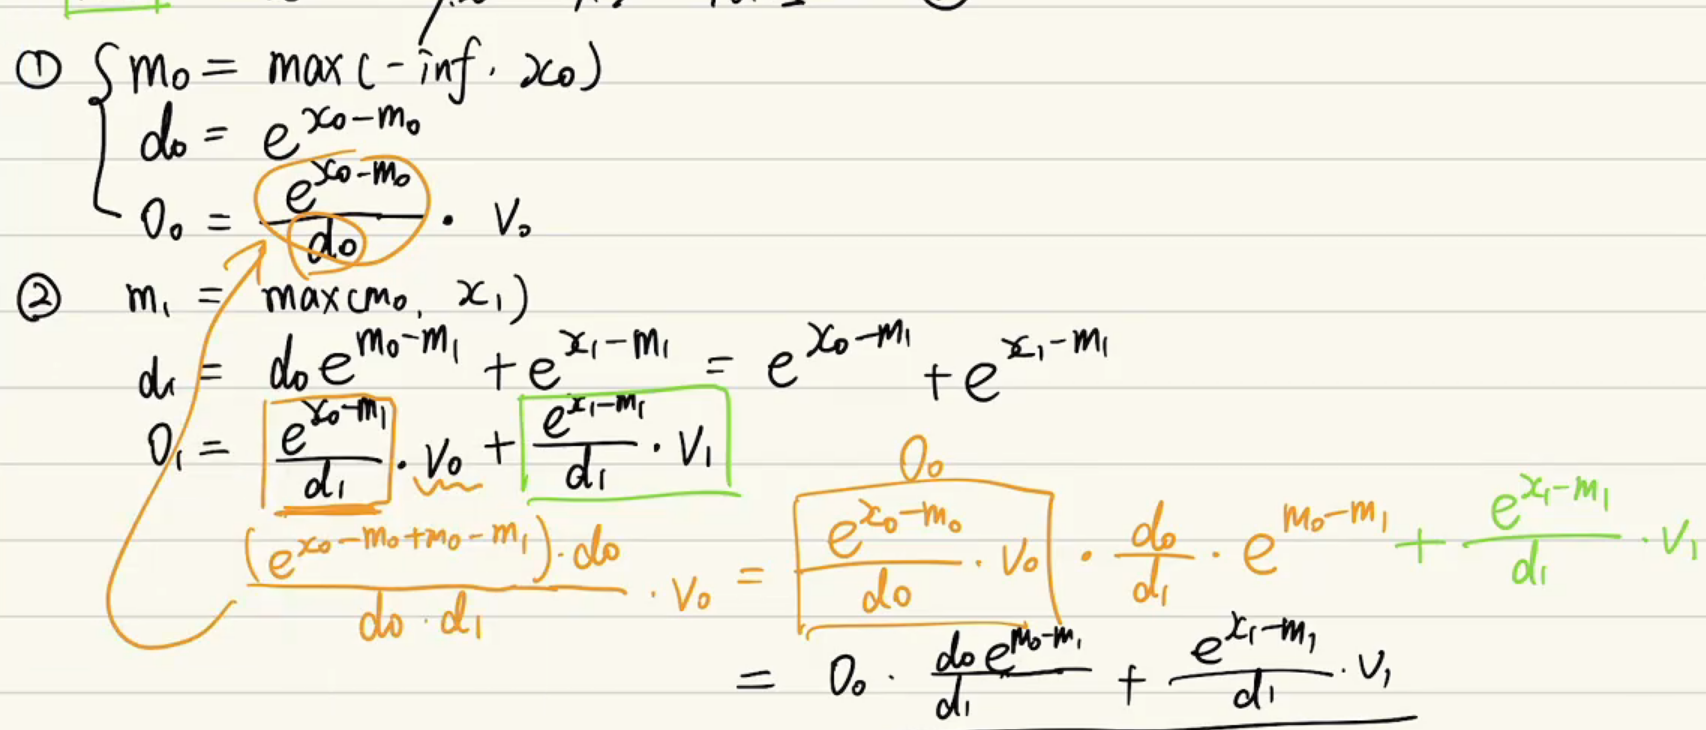 ① { m₀ = max(-inf, x₀)
d₀ = e^{x₀-m₀}
O₀ = \frac{e^{x₀-m₀}}{d₀} · V₀
② m₁ = max(m₀, x₁)
d₁ = d₀e^{m₀-m₁} + e^{x₁-m₁} = e^{x₀-m₁} + e^{x₁-m₁}
O₁ = \frac{e^{x₀-m₁}}{d₁} · V₀ + \frac{e^{x₁-m₁}}{d₁} · V₁
O₀
\frac{(e^{x₀-m₀+m₀-m₁})·d₀}{d₀·d₁} · V₀ = \frac{e^{x₀-m₀}}{d₀} · V₀ · \frac{d₀}{d₁} · e^{m₀-m₁} + \frac{e^{x₁-m₁}}{d₁} · V₁
= O₀ · \frac{d₀e^{m₀-m₁}}{d₁} + \frac{e^{x₁-m₁}}{d₁} · V₁